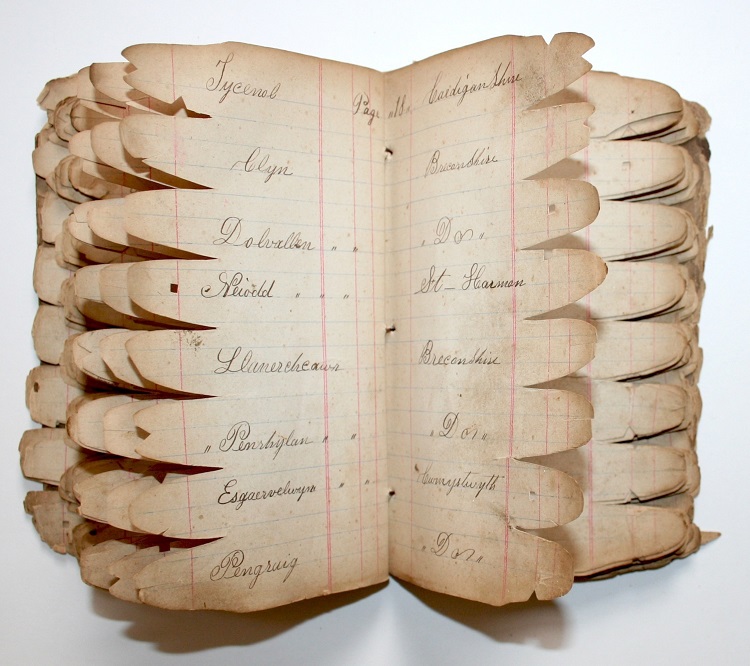 Tycenol Page "18" Cardigan Shire
Clyn Breconshire
Dolvallen " " " Do "
Neiodd " " " St - Harmon
Llanerchcawr Breconshire
" Penrhylan " " " Do "
Esgaervelwym " " Cwmystwyth
Pengraig " Do "